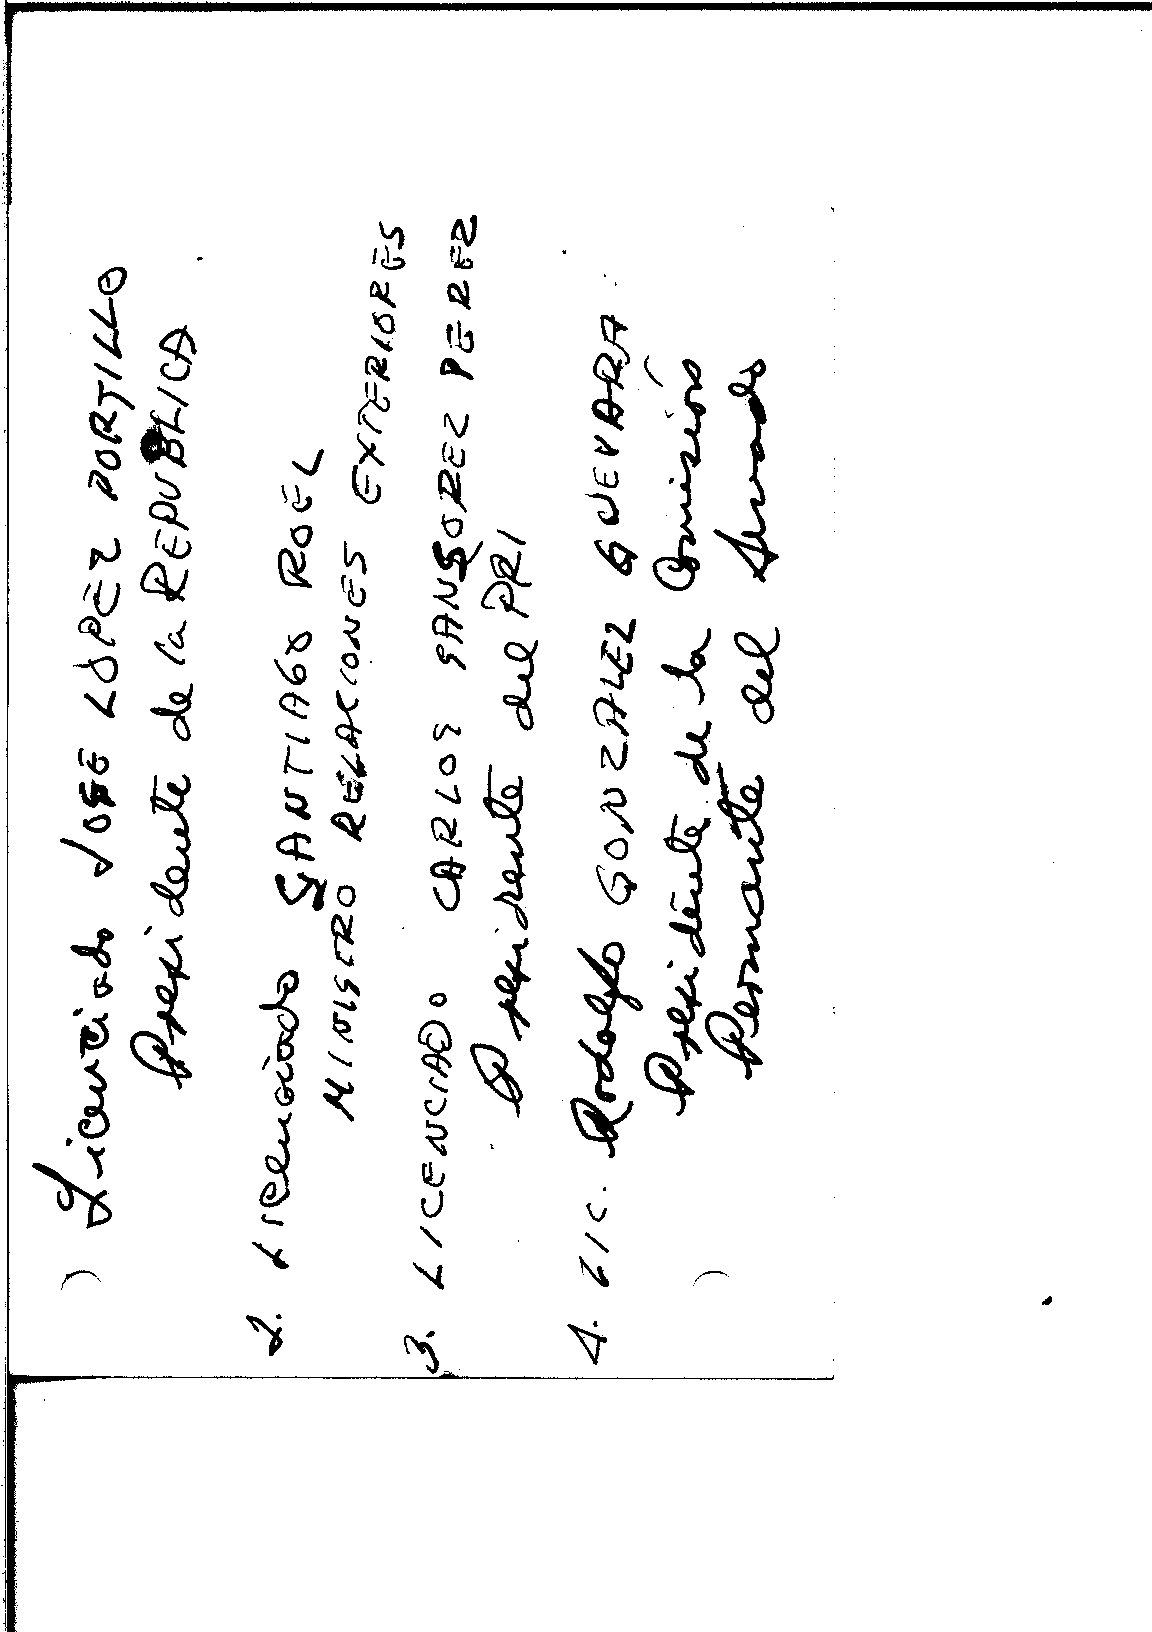 ) Licenciado JOSE LOPEZ PORTILLO
Presidente de la REPUBLICA
2. Licenciado SANTIAGO ROEL
MINISTRO RELACIONES EXTERIORES
3. LICENCIADO CARLOS SANSOREZ PEREZ
Presidente del PRI
4. LIC. Rodolfo GONZALEZ GUEVARA
Presidente de la Comisión
Permanente del Senado